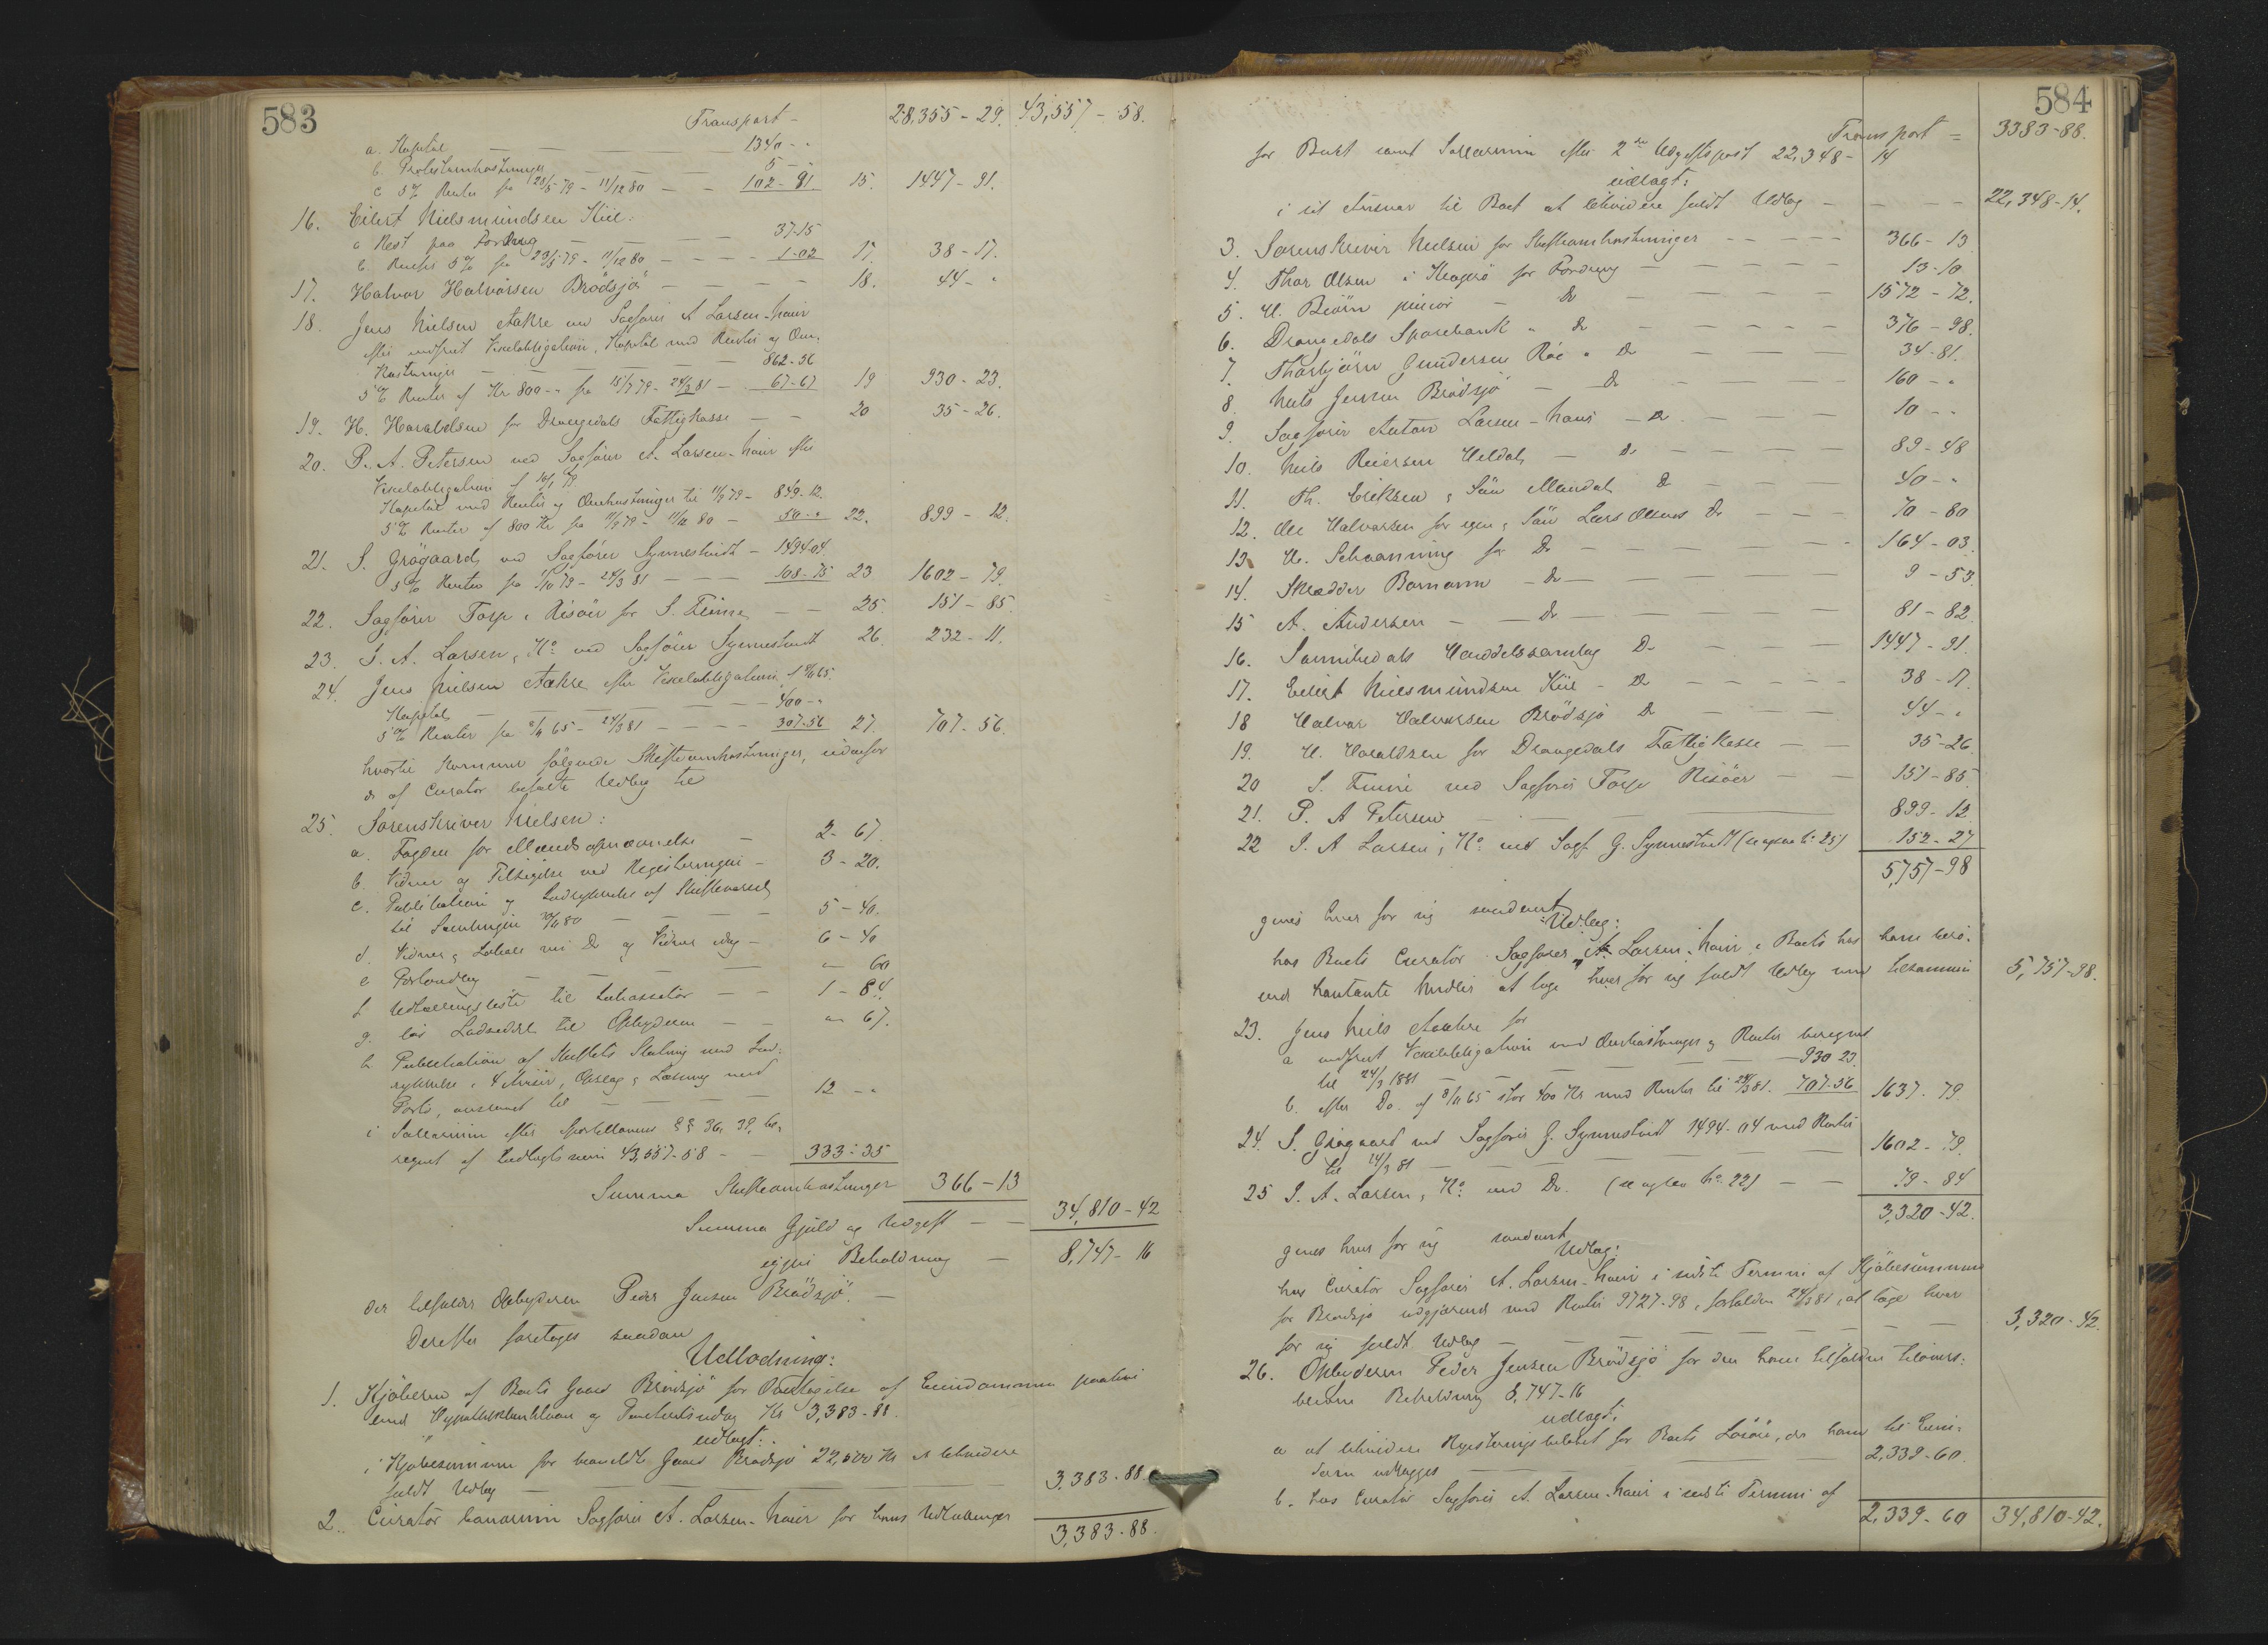 583
Transport - 28,355 - 29. 43,557 - 58.
a. Kapital — — — — 1340 - "
b. Protestomkostninger — — — 5 - "
c 5% Renter fra 28/5 79 - 11/12 80 — — 102 - 91 15. 1447 - 91.
16. Eilert Nielsmundsen Kiil:
a Rest paa Fordring — — — 37-15
b. Renter 5% fra 23/5 79 - 11/12 80 — — — 1-02 17. 38 - 17.
17. Halvor Halvorsen Brödsjö — — — — 18. 44 - "
18. Jens Nielsen Aakre ved Sagförer A Larsen-Naur
efter indfriet Vexelobligation, Kapital med Renter og Om-
kostninger — — — — — 862-56
5% Renter af Kr 800 - " fra 15/7 79 - 24/3 81 — 67-67 19 930 - 23.
19. H. Haraldsen for Drangedals Fattigkasse — — 20 35 - 26.
20. P. A. Petersen ved Sagförer A. Larsen-Naur efter
Vexelobligation af 10/1 79.
Kapital med Renter og Omkostninger til 11/9 79 - 849-12.
5% Renter af 800 Kr fra 11/9 79 - 11/12 80 — 50 - " 22. 899 - 12.
21. S. Grögaard ved Sagförer Synnestvedt - 1494-04
5% Renter fra 1/10 79 - 24/3 81 — — — 108-75 23 1602 - 79.
22. Sagförer Torp i Risöer for S. Finne — — 25. 151 - 85.
23. J. A. Larsen & Ko. ved Sagförer Synnestvedt 26 232 - 11.
24. Jens Nielsen Aakre efter Vexelobligation af 8/11 65.
Kapital — — — — — 400 - "
5% Renter fra 8/11 65 - 24/3 81 — — — 307-56 27. 707 - 56.
hvortil kommer fölgende Skifteomkostninger, udenfor
de af Curator befalte Udlæg til
25. Sorenskriver Nielsen:
a. Fogden for Mændsopnævnelse — 2 - 67
b. Vidner og Tilsigelse ved Registeringen - 3 - 20.
c. Publikation og Indrykkelse af Skiftevarsel
til Samlingen 30/11 80 — — — — 5 - 40.
d. Vidner & Lokale ved Do og Vidner idag - 6 - 40
e Portoudlæg — — — — — " 60
f. Udtællingsliste til Inkassator — — 1 - 84.
g. lös Ladseddel til Opbyderen — — " 67.
h. Publikation af Skiftets Slutning med Ind-
rykkelse i 4 Aviser, Opslag & Læsning med
Porto, ansættes til — — — — 12 - "
i Sallarium efter Sportellovens §§ 36, 39, be-
regnet af Indtægtssum 43,557-58 — — 333 - 35
Summa Skifteomkostninger 366 - 13
Summa Gjæld og Udgift — — 34,810-42
igjen Beholdning — 8,747 - 16
der tilfalder Opbyderen Peder Jensen Brödsjö. —
Derefter foretages saadan
Udlodning:
1. Kjöberen af Boets Gaard Brödsjö for Overtagelse af Eiendommens paahvi-
lende Hypothekbanklaan Kr 3,383-88.
udlagt:
i Kjöbesummen for bemeldte Gaard Brödsjö 22,500 Kr at likvidere
fuldt Udlæg — — — — — — — 3,383-88.
2. Curator bonorum Sagförer A. Larsen-Naur for hans Udtællinger
3,383-88.
584
Transport = 3383-88.
for Boet samt Sallarium efter 2den Udgiftspost 22,348 - 14
udlagt:
i sit Ansvar til Boet at likvidere fuldt Udlæg — — — — 22,348-14.
3. Sorenskriver Nielsen for Skifteomkostninger — — — — 366 - 13
4. Thor Olsen i Kragerö for Fordring — — — — 13-10
5. H. Biörn junior — Do — — — — 1572 - 72.
6. Drangedals Sparebank " Do — — — — 376 - 98.
7. Thorbjörn Gundersen Röe " Do — — — 34-81.
8. Niels Jensen Brödsjö — Do — — — — 160 - "
9. Sagförer Anton Larsen-Naur — Do — — — 10 - "
10. Niels Reiersen Heldal — Do — — — — 89 - 48
11. Th. Eriksen & Sön Mandal Do — — — — 40 - "
12. Ole Halvorsen for egen & Sön Lars Olsens Do — — — 70 - 80
13 H. Schaanning for Do — — — — — 164 - 03.
14. Skrædder Bomann — Do — — — — — 9 - 53.
15 A. Andersen — — Do — — — — — 81 - 82.
16. Sannikedals Handelssamlag Do — — — 1447 - 91.
17. Eilert Nielsmundsen Kiil - Do — — — — 38 - 17.
18 Halvor Halvorsen Brödsjö Do — — — — 44 - "
19. H. Haraldsen for Drangedals Fattigkasse — — 35-26.
20 S. Finne ved Sagförer Torp Risöer — — 151-85.
21. P. A Petersen — — — 899-12
22 J. A Larsen & Ko. ved Sagf. G. Synnestvedt (se ogsaa No 25) 152-27
5,757-98
gives hver for sig saadant
Udlæg:
hos Boets Curator Sagförer A. Larsen-Naur i Boets hos ham bero-
ende kontante Midler at tage hver for sig fuldt Udlæg med tilsammen 5,757-98.
23. Jens Niels Aakre for
a indfriet Vexelobligation med Omkostninger & Renter beregnet
til 24/3 1881 — — — — — — — 930 23
b. efter Do. af 8/11 65 stor 400 Kr med Renter til 24/3 81. 707-56 1637-79.
24. S. Grögaard ved Sagförer G. Synnestvedt 1494-04 med Renter
til 24/3 81 — — — — — — — — 1602-79.
25 J. A. Larsen & Ko. ved Do. (se ogsaa No 22) — — 79 - 84
3,320-42.
gives hver for sig saadant
Udlæg:
hos Curator Sagförer A. Larsen-Naur i sidste Termin af Kjöbesummen
for Brödsjö udgjörende med Renter 9727-98, forfalden 24/3 81, at tage hver
for sig fuldt Udlæg — — — — — — — — 3,320-42.
26. Opbyderen Peder Jensen Brödsjö for den ham tilfaldne tilovers-
blevne Beholdning 8,747-16
udlagt:
a at likvidere Registeringsbelöbet for Boets Lösöre, der ham til Eien-
dom udlægges — — — — — 2,339-60.
b. hos Curator Sagförer A. Larsen-Naur i sidste Termin af
2,339-60 34,810-42.